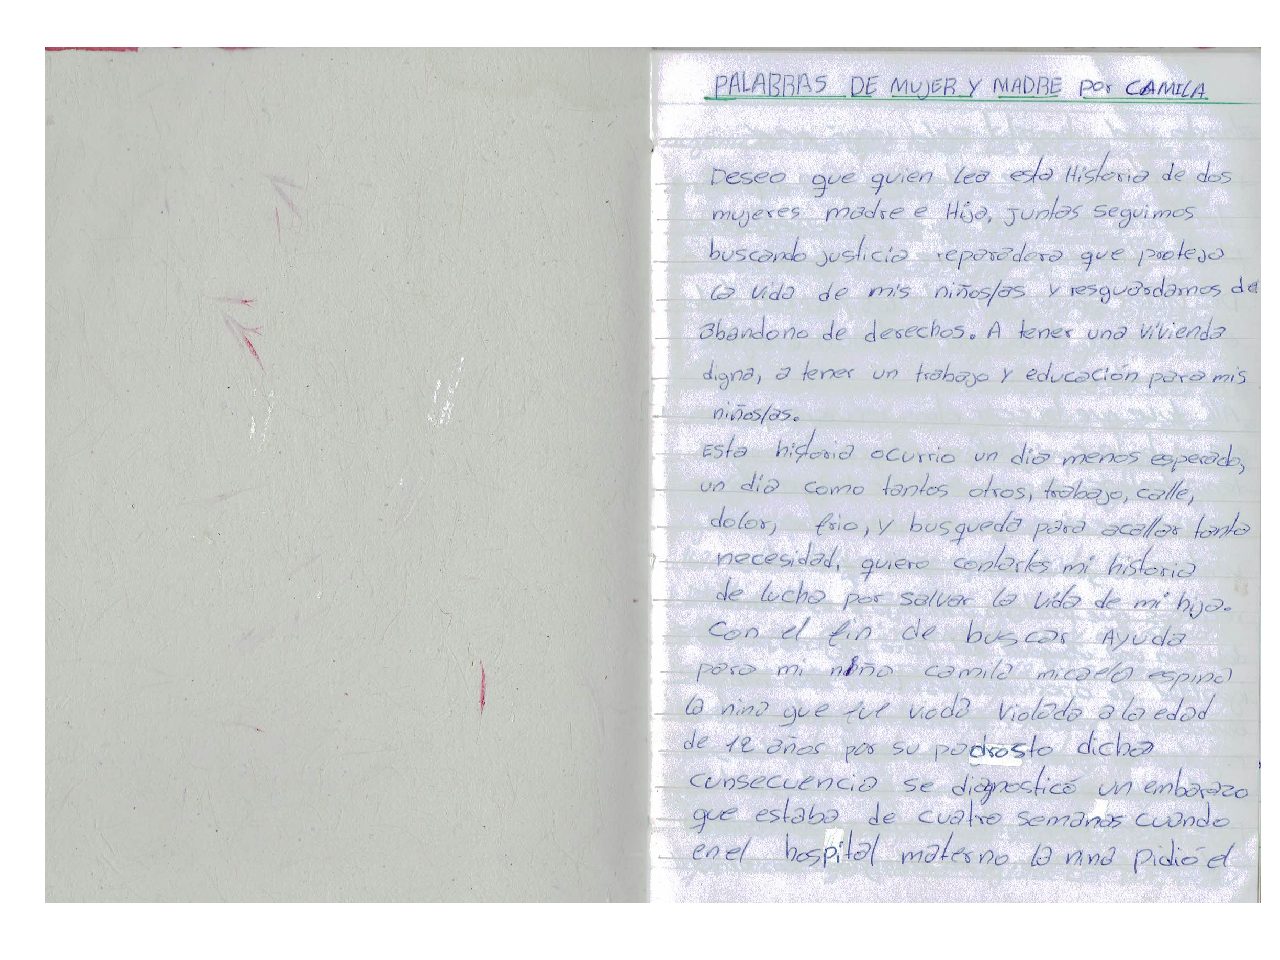 PALABRAS DE MUJER Y MADRE por CAMILA
Deseo que quien lea esta Historia de dos
mujeres madre e Hija, juntas seguimos
buscando justicia reparadora que proteja
la vida de mis niños/as y resguardarnos de
abandono de derechos. A tener una vivienda
digna, a tener un trabajo y educación para mis
niños/as.
Esta historia ocurrio un dia menos esperado,
un día como tantos otros, trabajo, calle,
dolor, frio, y busqueda para acallar tanta
necesidad, quiero contarles mi historia
de lucha por salvar la vida de mi hija.
Con el fin de buscar Ayuda
para mi niña camila micaela espino
la nina que fue violada a la edad
de 12 años por su padrasto dicha
cunsecuencia se diagnosticó un embarazo
que estaba de cuatro semanas cuando
en el hospital materno la nina pidió el